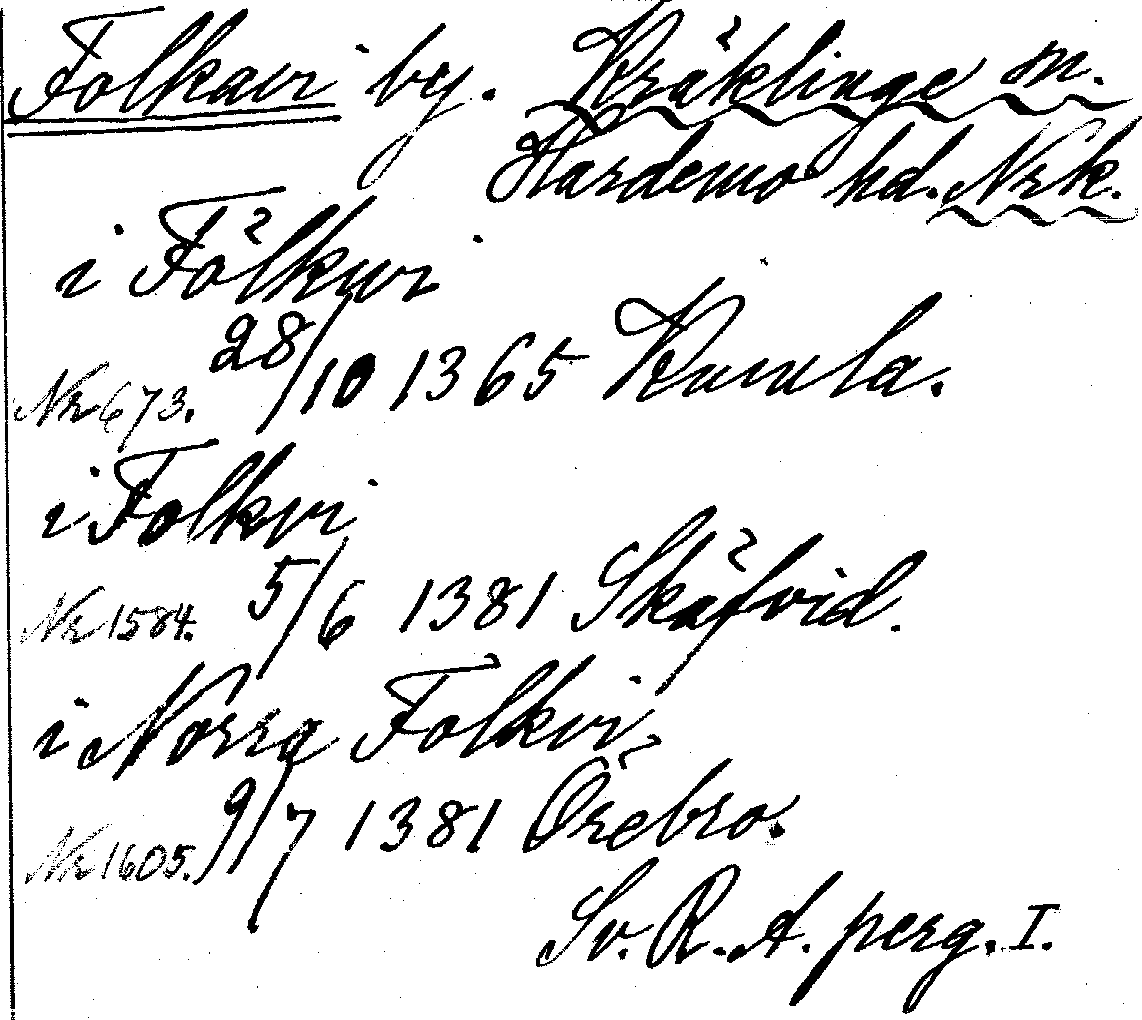 Folkavi by. Kräklinge sn.
Hardemo hd. Nrk.
i Fölkwi
Nr 673. 28/10 1365 Kumla.
i Folkvi
Nr 1584. 5/6 1381 Skäfvid.
i Norra Folkvi
Nr 1605. 9/7 1381 Örebro.
Sv. R. A. perg. I.